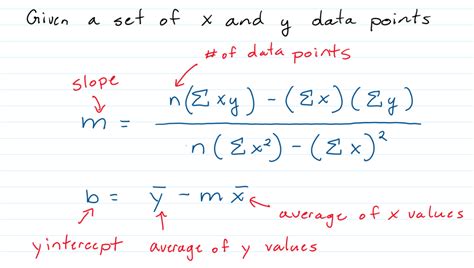 Given a set of x and y data points
# of data points
slope
m = n(Σxy) - (Σx)(Σy) / n(Σx²) - (Σx)²
b = ȳ - m x̄
average of x values
y intercept average of y values